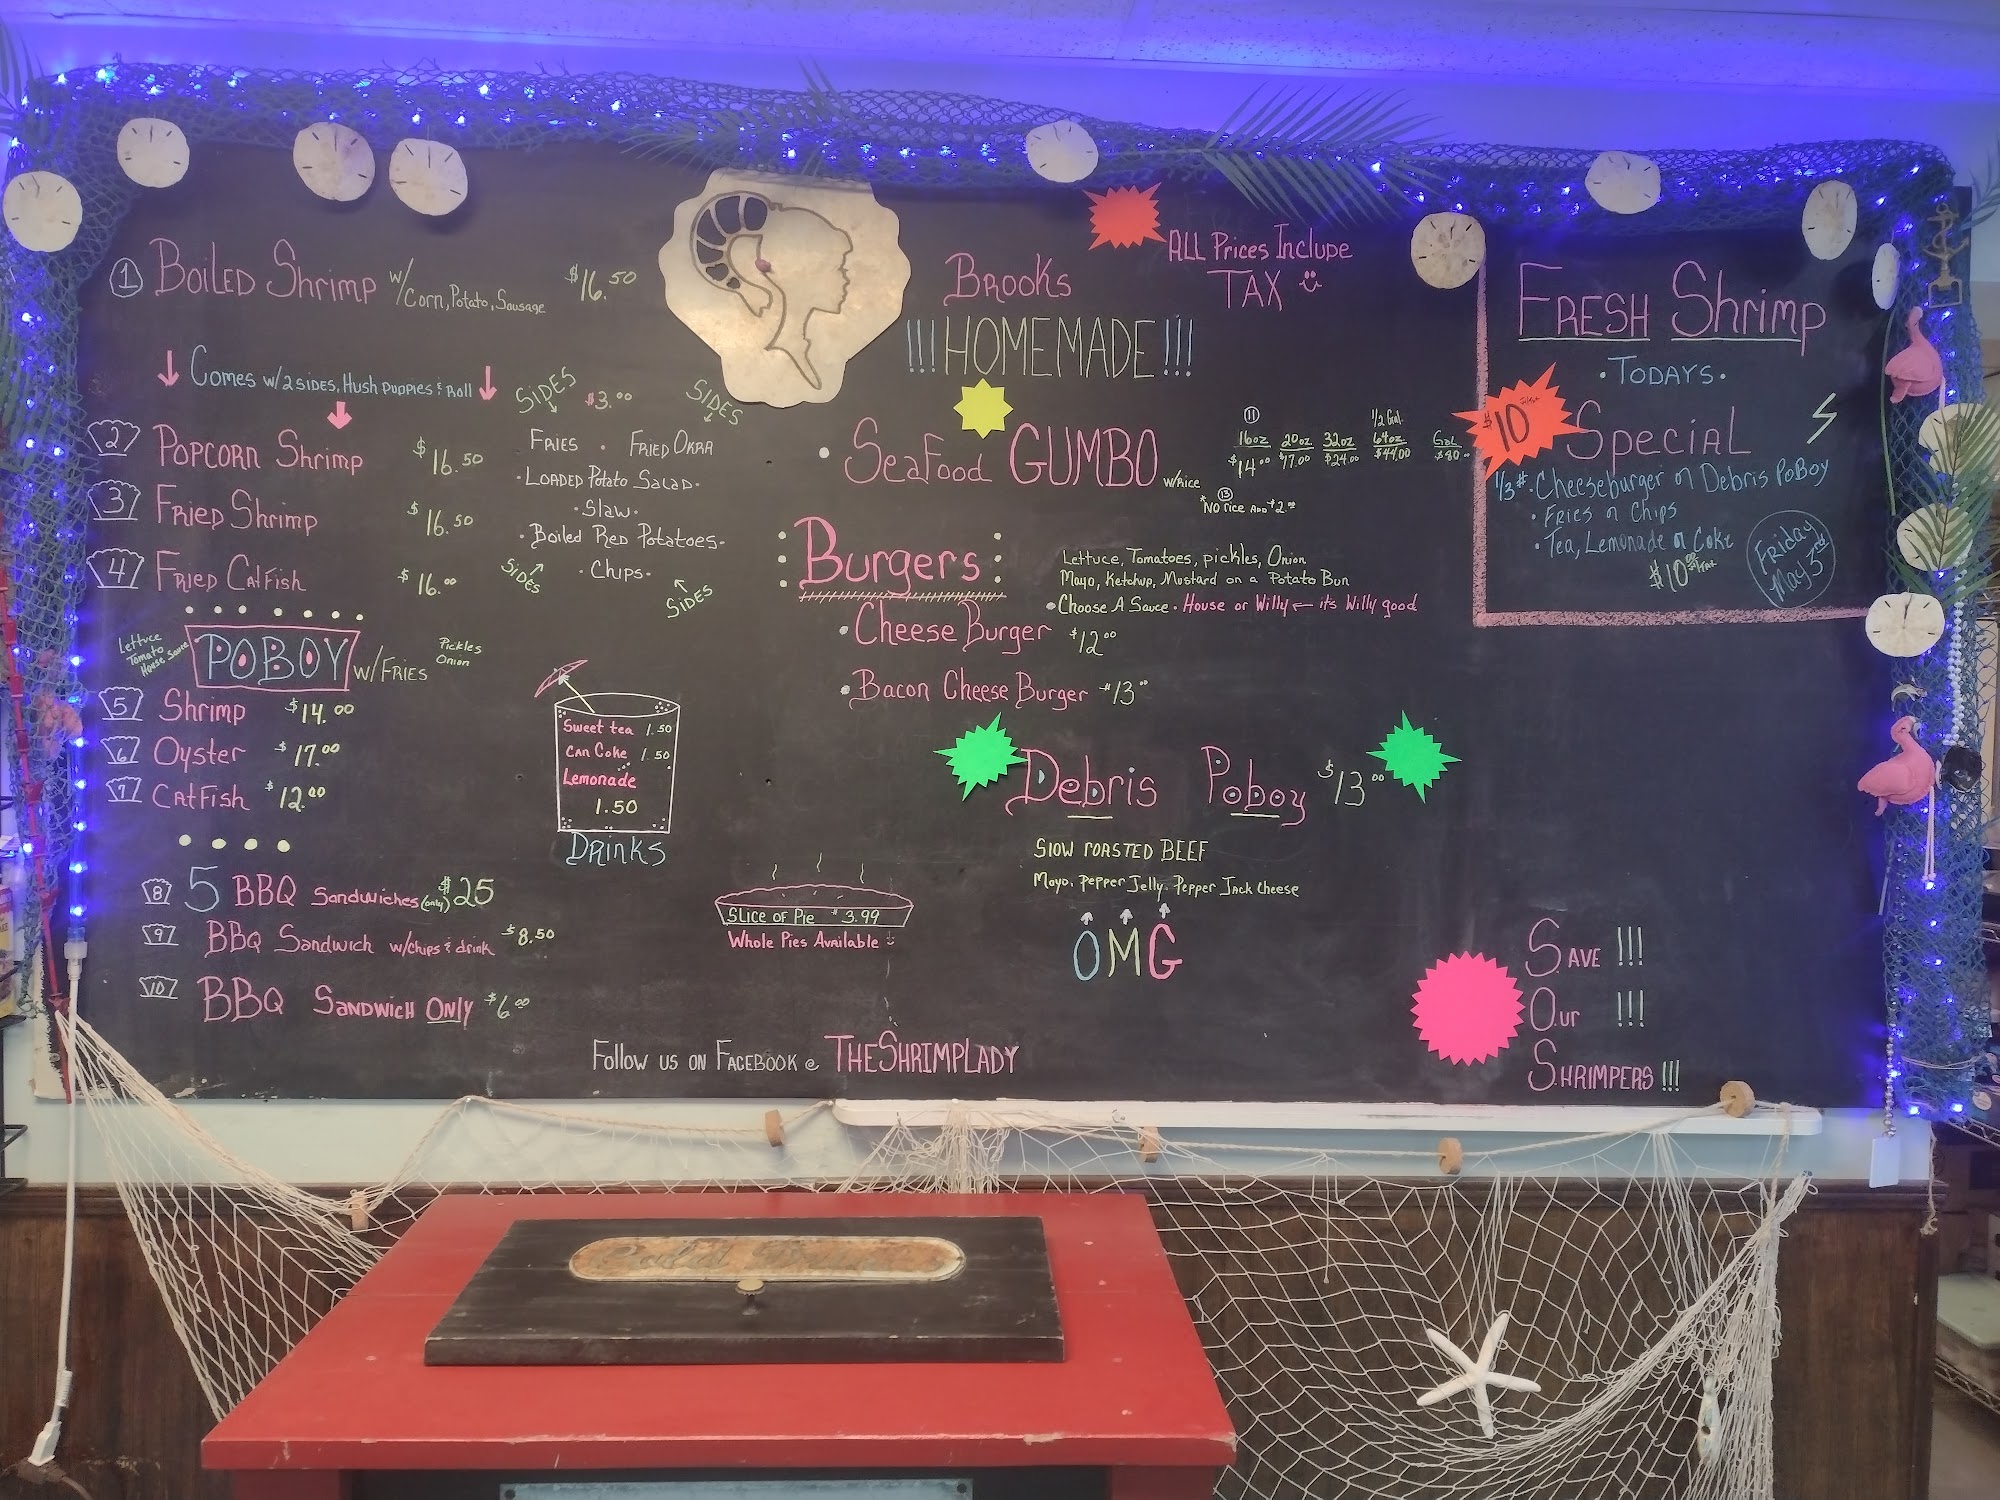 1 Boiled Shrimp w/ Corn, Potato, Sausage $16.50
Comes w/2 sides, Hush puppies & Roll
2 Popcorn Shrimp $16.50
3 Fried Shrimp $16.50
4 Fried Catfish $16.00
Sides $3.00 Sides
Fries • Fried Okra
• Loaded Potato Salad •
• Slaw •
• Boiled Red Potatoes •
• Chips •
Sides Sides
Lettuce
Tomato
House Sauce
POBOY w/Fries
Pickles
Onion
5 Shrimp $14.00
6 Oyster $17.00
7 Catfish $12.00
8 5 BBQ Sandwiches (only) $25
9 BBQ Sandwich w/chips & drink $8.50
10 BBQ Sandwich Only $6.00
Sweet tea 1.50
Can Coke 1.50
Lemonade
1.50
Drinks
Slice of Pie $3.99
Whole Pies Available
Follow us on Facebook @ TheShrimpLady
All Prices Include
TAX
Brooks
!!!HOMEMADE!!!
• Seafood GUMBO w/Rice
11
16oz $14.00
20oz $17.00
32oz $24.00
1/2 Gal. 64oz $44.00
Gal $80
13
*No rice Add $2.00
Burgers
Lettuce, Tomatoes, pickles, Onion
Mayo, Ketchup, Mustard on a Potato Bun
• Choose A Sauce • House or Willy ← its Willy good
• Cheese Burger $12.00
• Bacon Cheese Burger $13.00
Debris Poboy $13.00
Slow roasted BEEF
Mayo, Pepper Jelly, Pepper Jack Cheese
OMG
Fresh Shrimp
• Todays •
$10
Special
1/3# • Cheeseburger or Debris PoBoy
• Fries or Chips
• Tea, Lemonade or Coke
$10.00
Friday
May 3rd
Save !!!
Our !!!
Shrimpers !!!